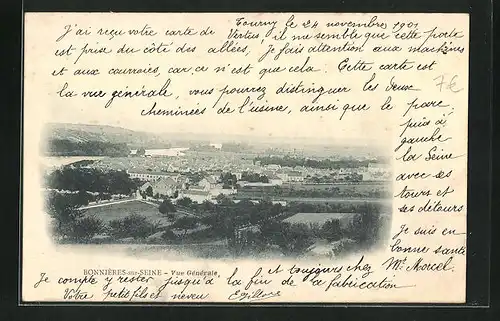 Tourny le 24 novembre 1901
J'ai reçu votre carte de Vertus, il me semble que cette porte
est prise du côté des allées, Je fais attention aux machines
et aux courroies, car ce n'est que cela. Cette carte est
la vue générale, vous pourrez distinguer les deux
cheminées de l'usine, ainsi que le parc,
7€
puis à
gauche
la Seine
avec ses
tours et
ses détours
Je suis en
bonne santé
et toujours chez Mr Marcel.
BONNIÈRES-sur-SEINE – Vue Générale,
Je compte y rester jusqu'à la fin de la fabrication
Votre petit fils et neveu